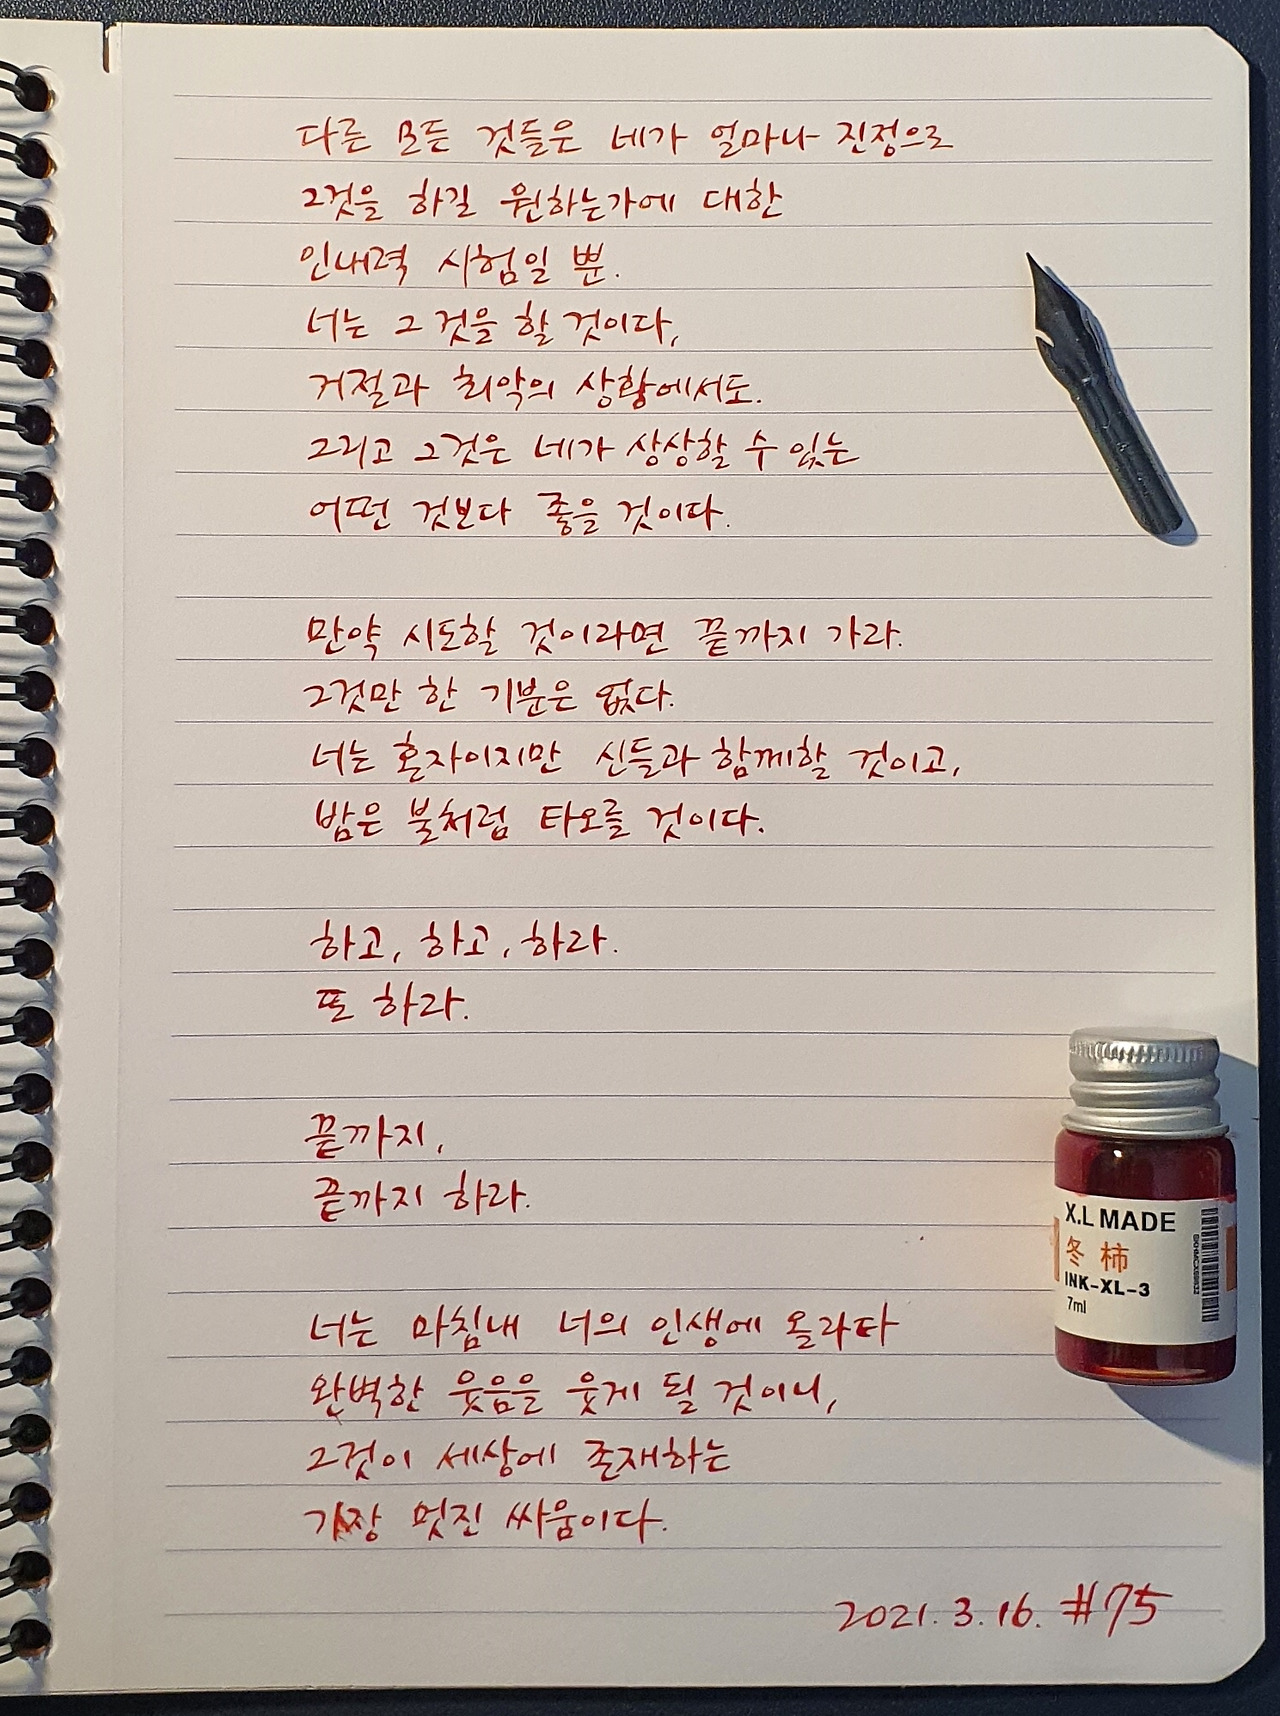 다른 모든 것들은 네가 얼마나 진정으로
그것을 하길 원하는가에 대한
인내력 시험일 뿐.
너는 그것을 할 것이다,
거절과 최악의 상황에서도.
그리고 그것은 네가 상상할 수 있는
어떤 것보다 좋을 것이다.
만약 시도할 것이라면 끝까지 가라.
그것만 한 기분은 없다.
너는 혼자이지만 신들과 함께할 것이고,
밤은 불처럼 타오를 것이다.
하고, 하고, 하라.
또 하라.
끝까지,
끝까지 하라.
너는 마침내 너의 인생에 올라타
완벽한 웃음을 웃게 될 것이니,
그것이 세상에 존재하는
가장 멋진 싸움이다.
2021. 3. 16. #75
X.L MADE
冬 柿
INK-XL-3
7ml